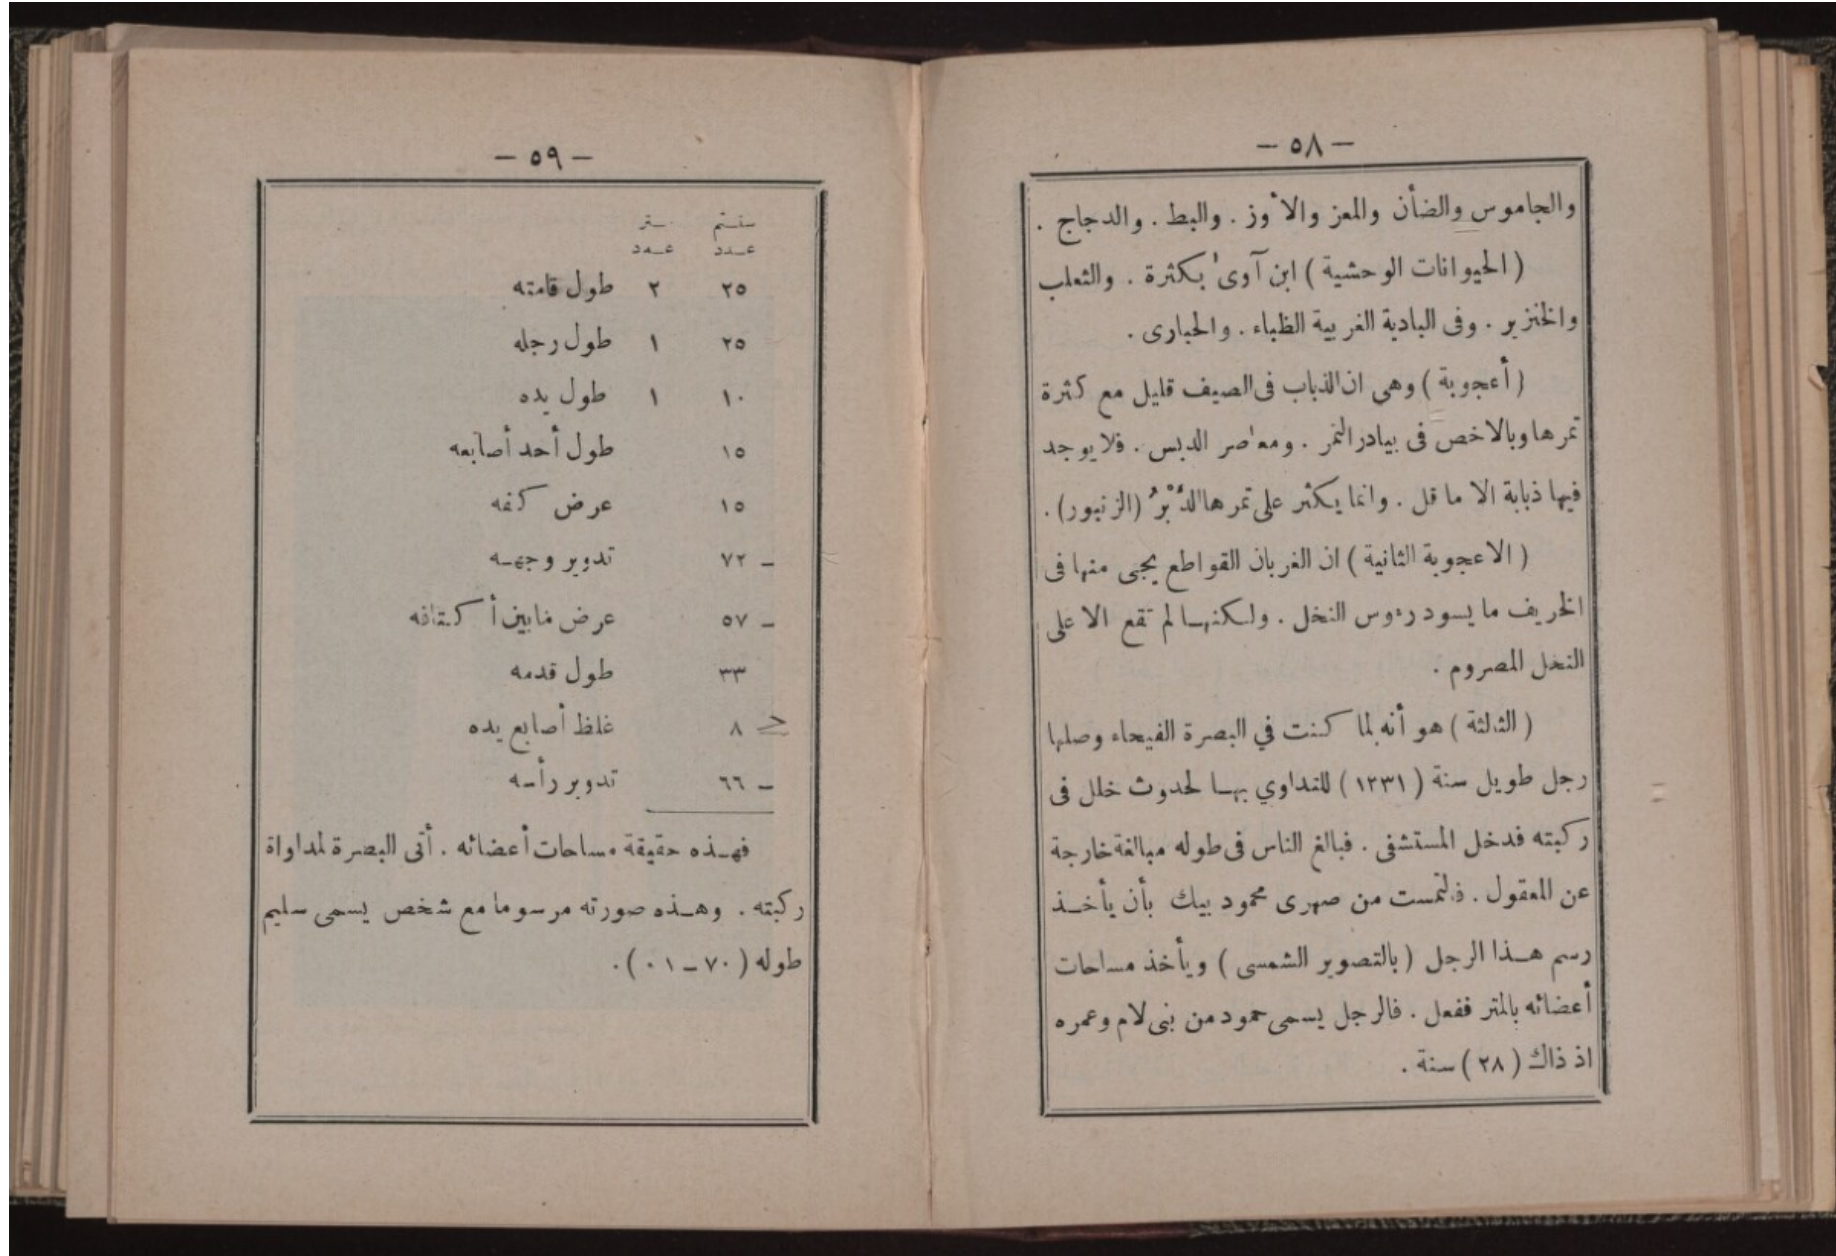 — ٥٨ —
والجاموس والضأن والمعز والأوز . والبط . والدجاج .
( الحيوانات الوحشية ) ابن آوى بكثرة . والثعلب
والخنزير . وفى البادية الغربية الظباء . والحبارى .
( أعجوبة ) وهى ان الذباب فى الصيف قليل مع كثرة
تمرها وبالاخص فى بيادر التمر . ومعاصر الدبس . فلا يوجد
فيها ذبابة الا ما قل . وانما يكثر على تمرها الدَّبْرُ (الزنبور) .
( الاعجوبة الثانية ) ان الغربان القواطع يجى منها فى
الخريف ما يسود رءوس النخل . ولكنها لم تقع الا على
النخل المصروم .
( الثالثة ) هو أنه لما كنت في البصرة الفيحاء وصلها
رجل طويل سنة ( ١٣٣١ ) للتداوي بها لحدوث خلل فى
ركبته فدخل المستشفى . فبالغ الناس فى طوله مبالغة خارجة
عن المعقول . فالتمست من صهرى محمود بيك بأن يأخذ
رسم هذا الرجل ( بالتصوير الشمسى ) ويأخذ مساحات
أعضائه بالمتر ففعل . فالرجل يسمى حمود من بنى لام وعمره
اذ ذاك ( ٢٨ ) سنة .
— ٥٩ —
سنتم متر
عدد عدد
٢٥ ٢ طول قامته
٢٥ ١ طول رجله
١٠ ١ طول يده
١٥ طول أحد أصابعه
١٥ عرض كفه
٧٢ تدوير وجهه
٥٧ عرض مابين أكتافه
٣٣ طول قدمه
٨ غلظ أصابع يده
٦٦ تدوير رأسه
فهذه حقيقة مساحات أعضائه . أتى البصرة لمداواة
ركبته . وهذه صورته مرسوما مع شخص يسمى سليم
طوله ( ٧٠ – ٠١ ) .